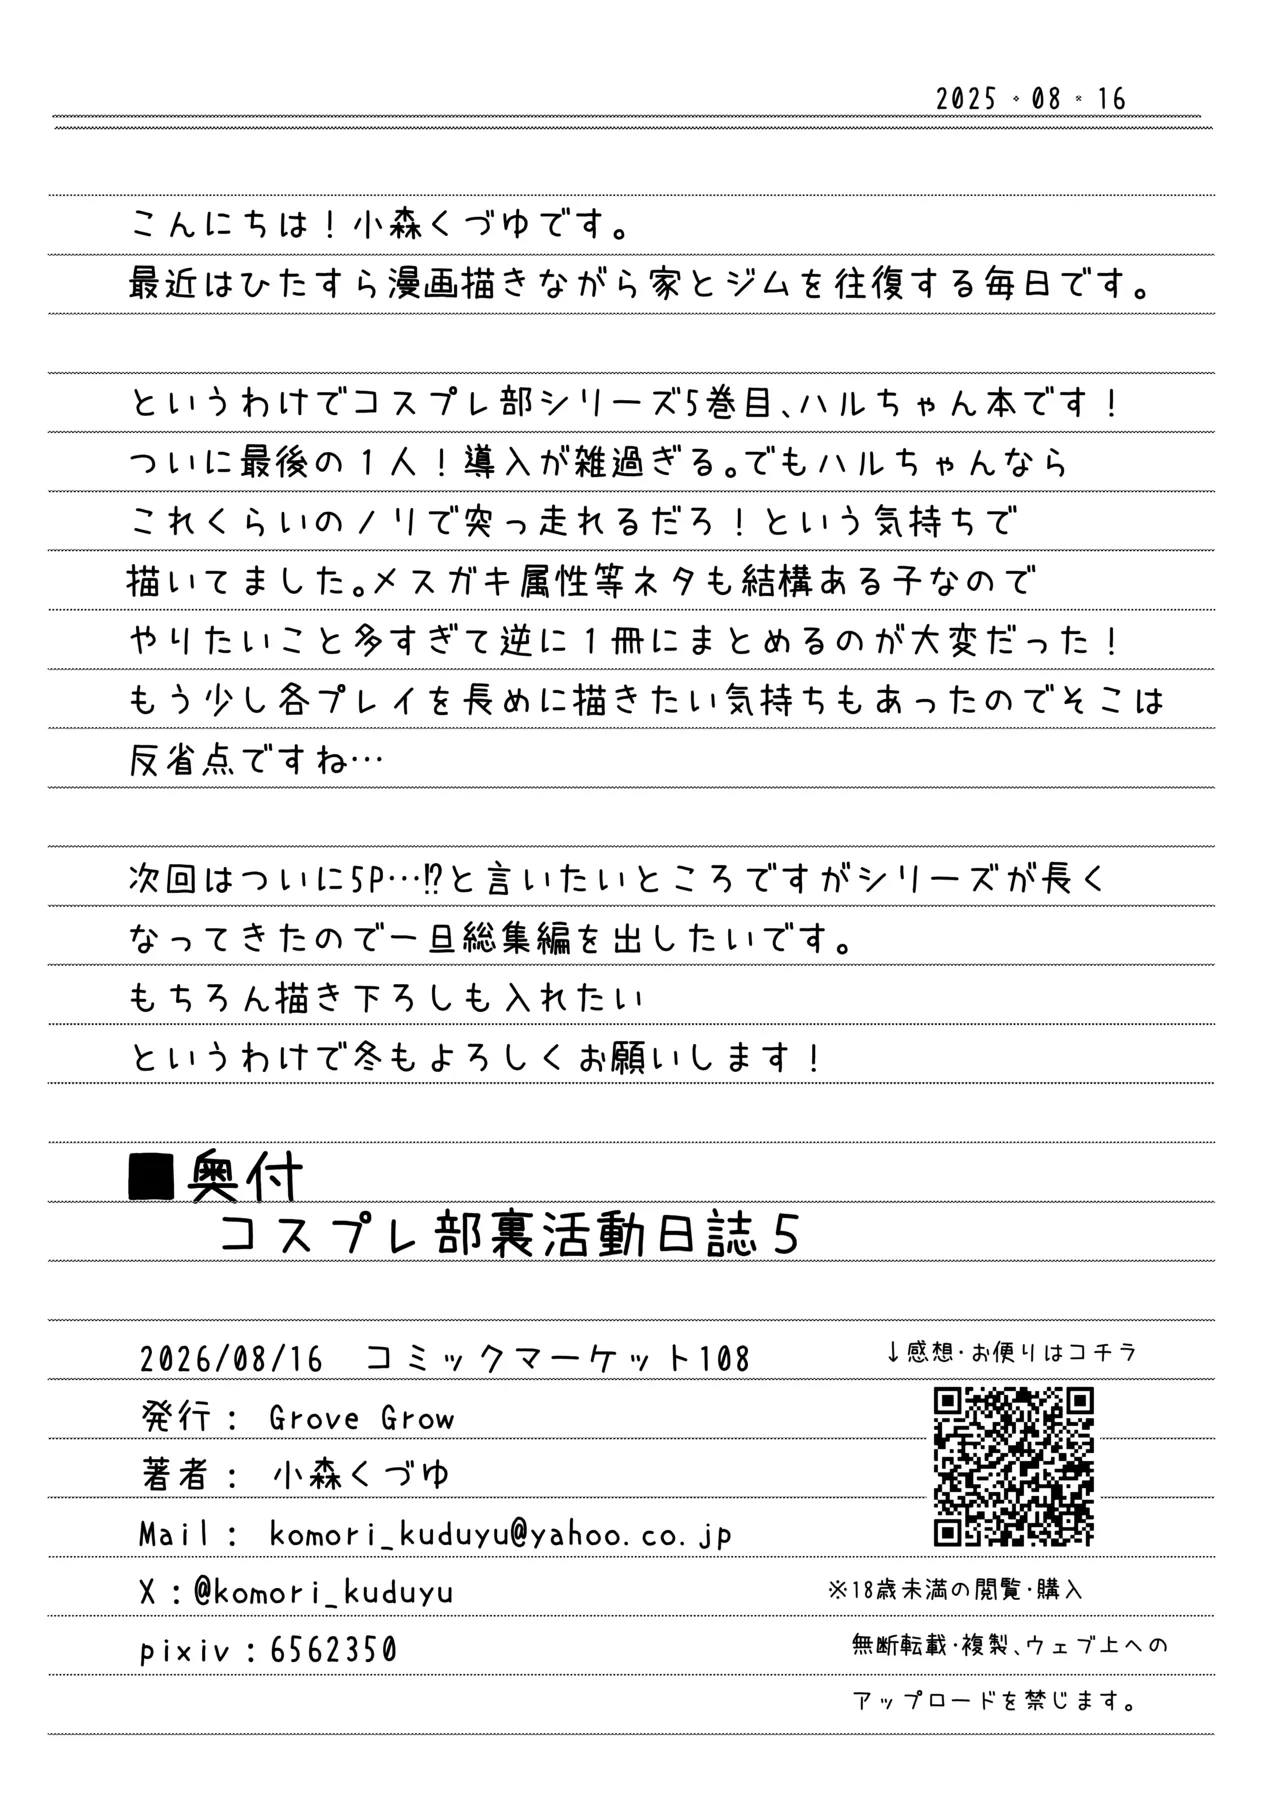 2025・08・16
こんにちは！小森くづゆです。
最近はひたすら漫画描きながら家とジムを往復する毎日です。
というわけでコスプレ部シリーズ5巻目、ハルちゃん本です！
ついに最後の１人！導入が雑過ぎる。でもハルちゃんなら
これくらいのノリで突っ走れるだろ！という気持ちで
描いてました。メスガキ属性等ネタも結構ある子なので
やりたいこと多すぎて逆に１冊にまとめるのが大変だった！
もう少し各プレイを長めに描きたい気持ちもあったのでそこは
反省点ですね…
次回はついに5P…!?と言いたいところですがシリーズが長く
なってきたので一旦総集編を出したいです。
もちろん描き下ろしも入れたい
というわけで冬もよろしくお願いします！
■奥付
コスプレ部裏活動日誌５
2026/08/16　コミックマーケット108
発行： Grove Grow
著者： 小森くづゆ
Mail： komori_kuduyu@yahoo.co.jp
X：@komori_kuduyu
pixiv：6562350
↓感想・お便りはコチラ
※18歳未満の閲覧・購入
無断転載・複製、ウェブ上への
アップロードを禁じます。